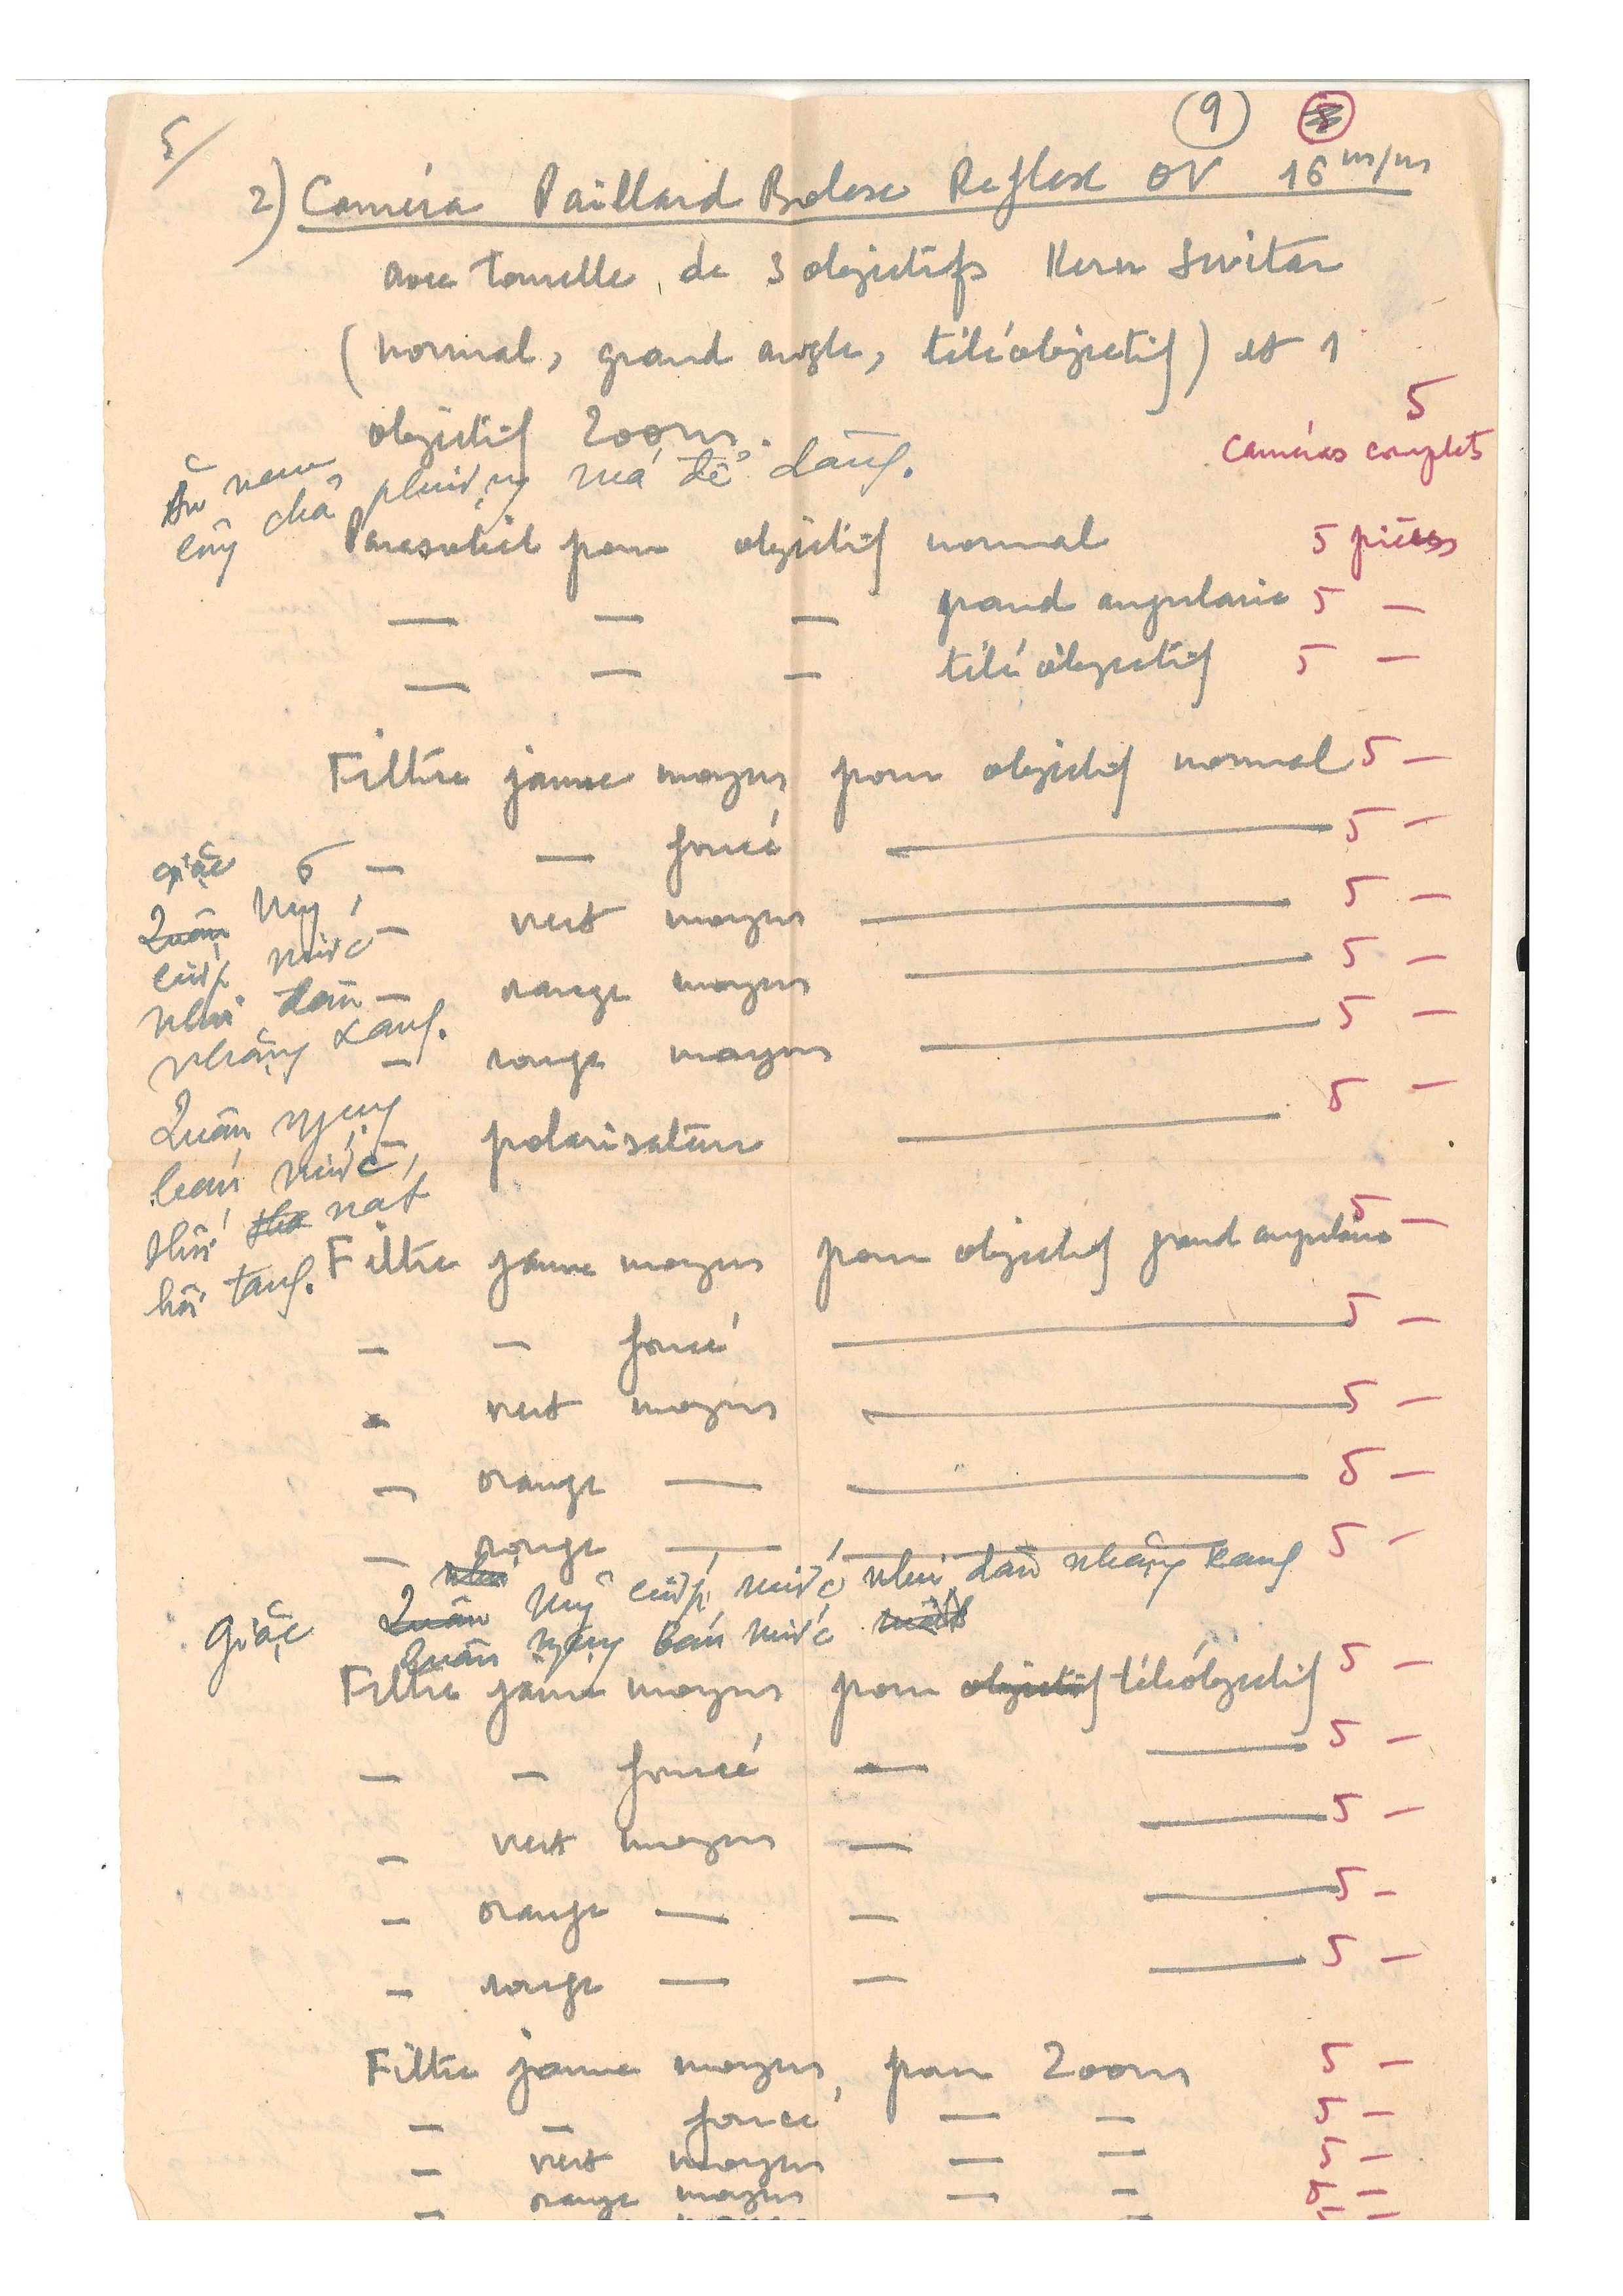 5/
9
2) Caméra Paillard Bolex Reflex 16 m/m
avec tourelle de 3 objectifs Kern Switar
(normal, grand angle, téléobjectif) et 1
objectif Zoom.
5
caméras complets
nam
cây chả phượng má đề
Parasoleil pour objectif normal 5 pièces
— — — grand angulaire 5 —
— — — téléobjectif 5 —
Filtre jaune moyen pour objectif normal 5 —
— — foncé — 5 —
— vert moyen — 5 —
— orange moyen — 5 —
— rouge moyen — 5 —
— polarisateur — 5 —
Giặc
Quân Mỹ
cướp nước
như dân
Quân ngụy
bán nước,
nát
Filtre jaune moyen pour objectif grand angulaire 5 —
— — foncé — 5 —
— vert moyen — 5 —
— orange — — 5 —
— rouge — — 5 —
Giặc Quân Mỹ cướp nước như
Quân ngụy bán nước
Filtre jaune moyen pour objectif téléobjectif 5 —
— — foncé — — 5 —
— vert moyen — — 5 —
— orange — — — 5 —
— rouge — — — 5 —
Filtre jaune moyen pour Zoom 5 —
— — foncé — — 5 —
— vert moyen — — 5 —
— orange moyen — — 5 —